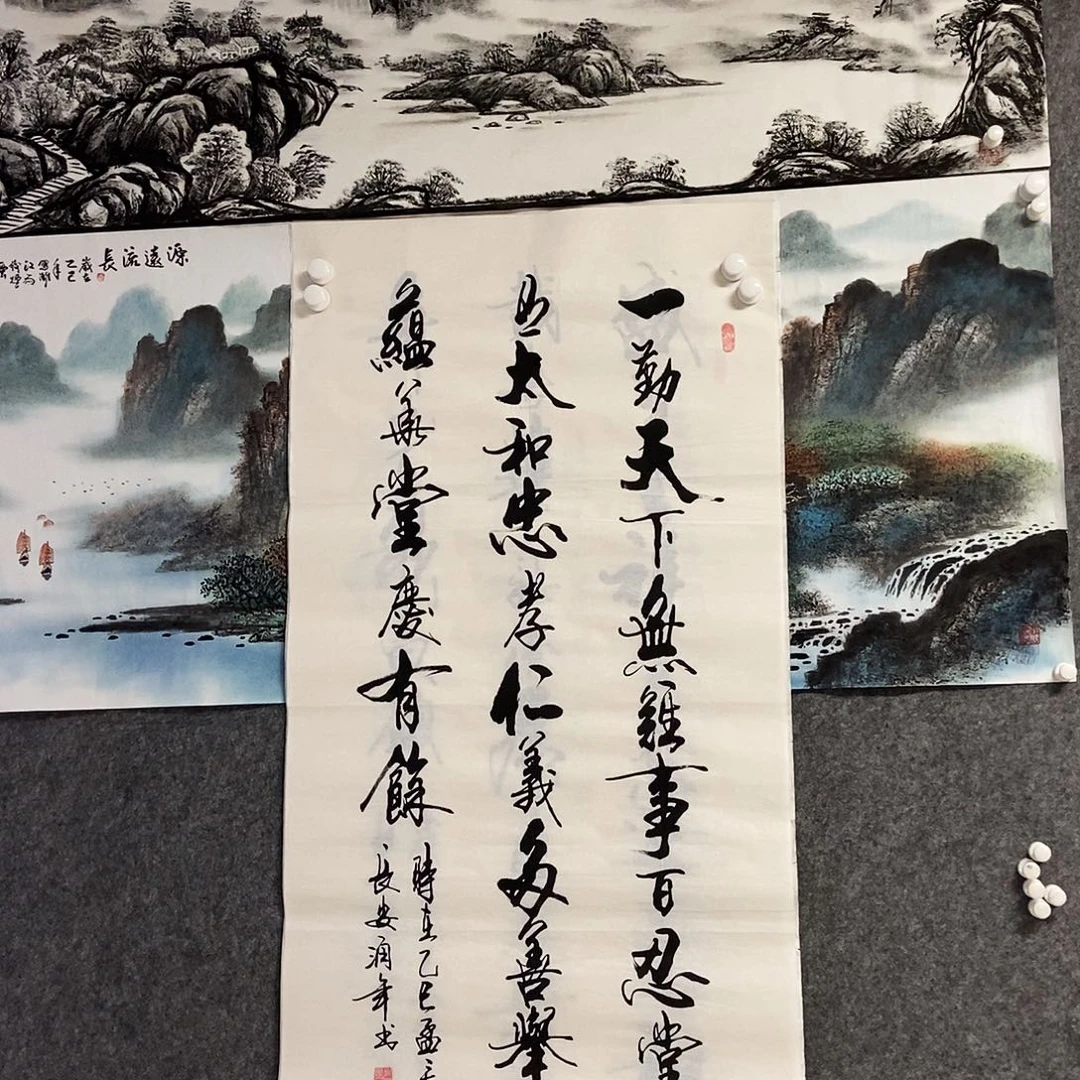 一勤天下無難事百忍堂
太和忠孝仁義多善舉
蘊 堂慶有餘
時在乙巳孟
長安 年书
源遠流長
歲在
乙巳
年